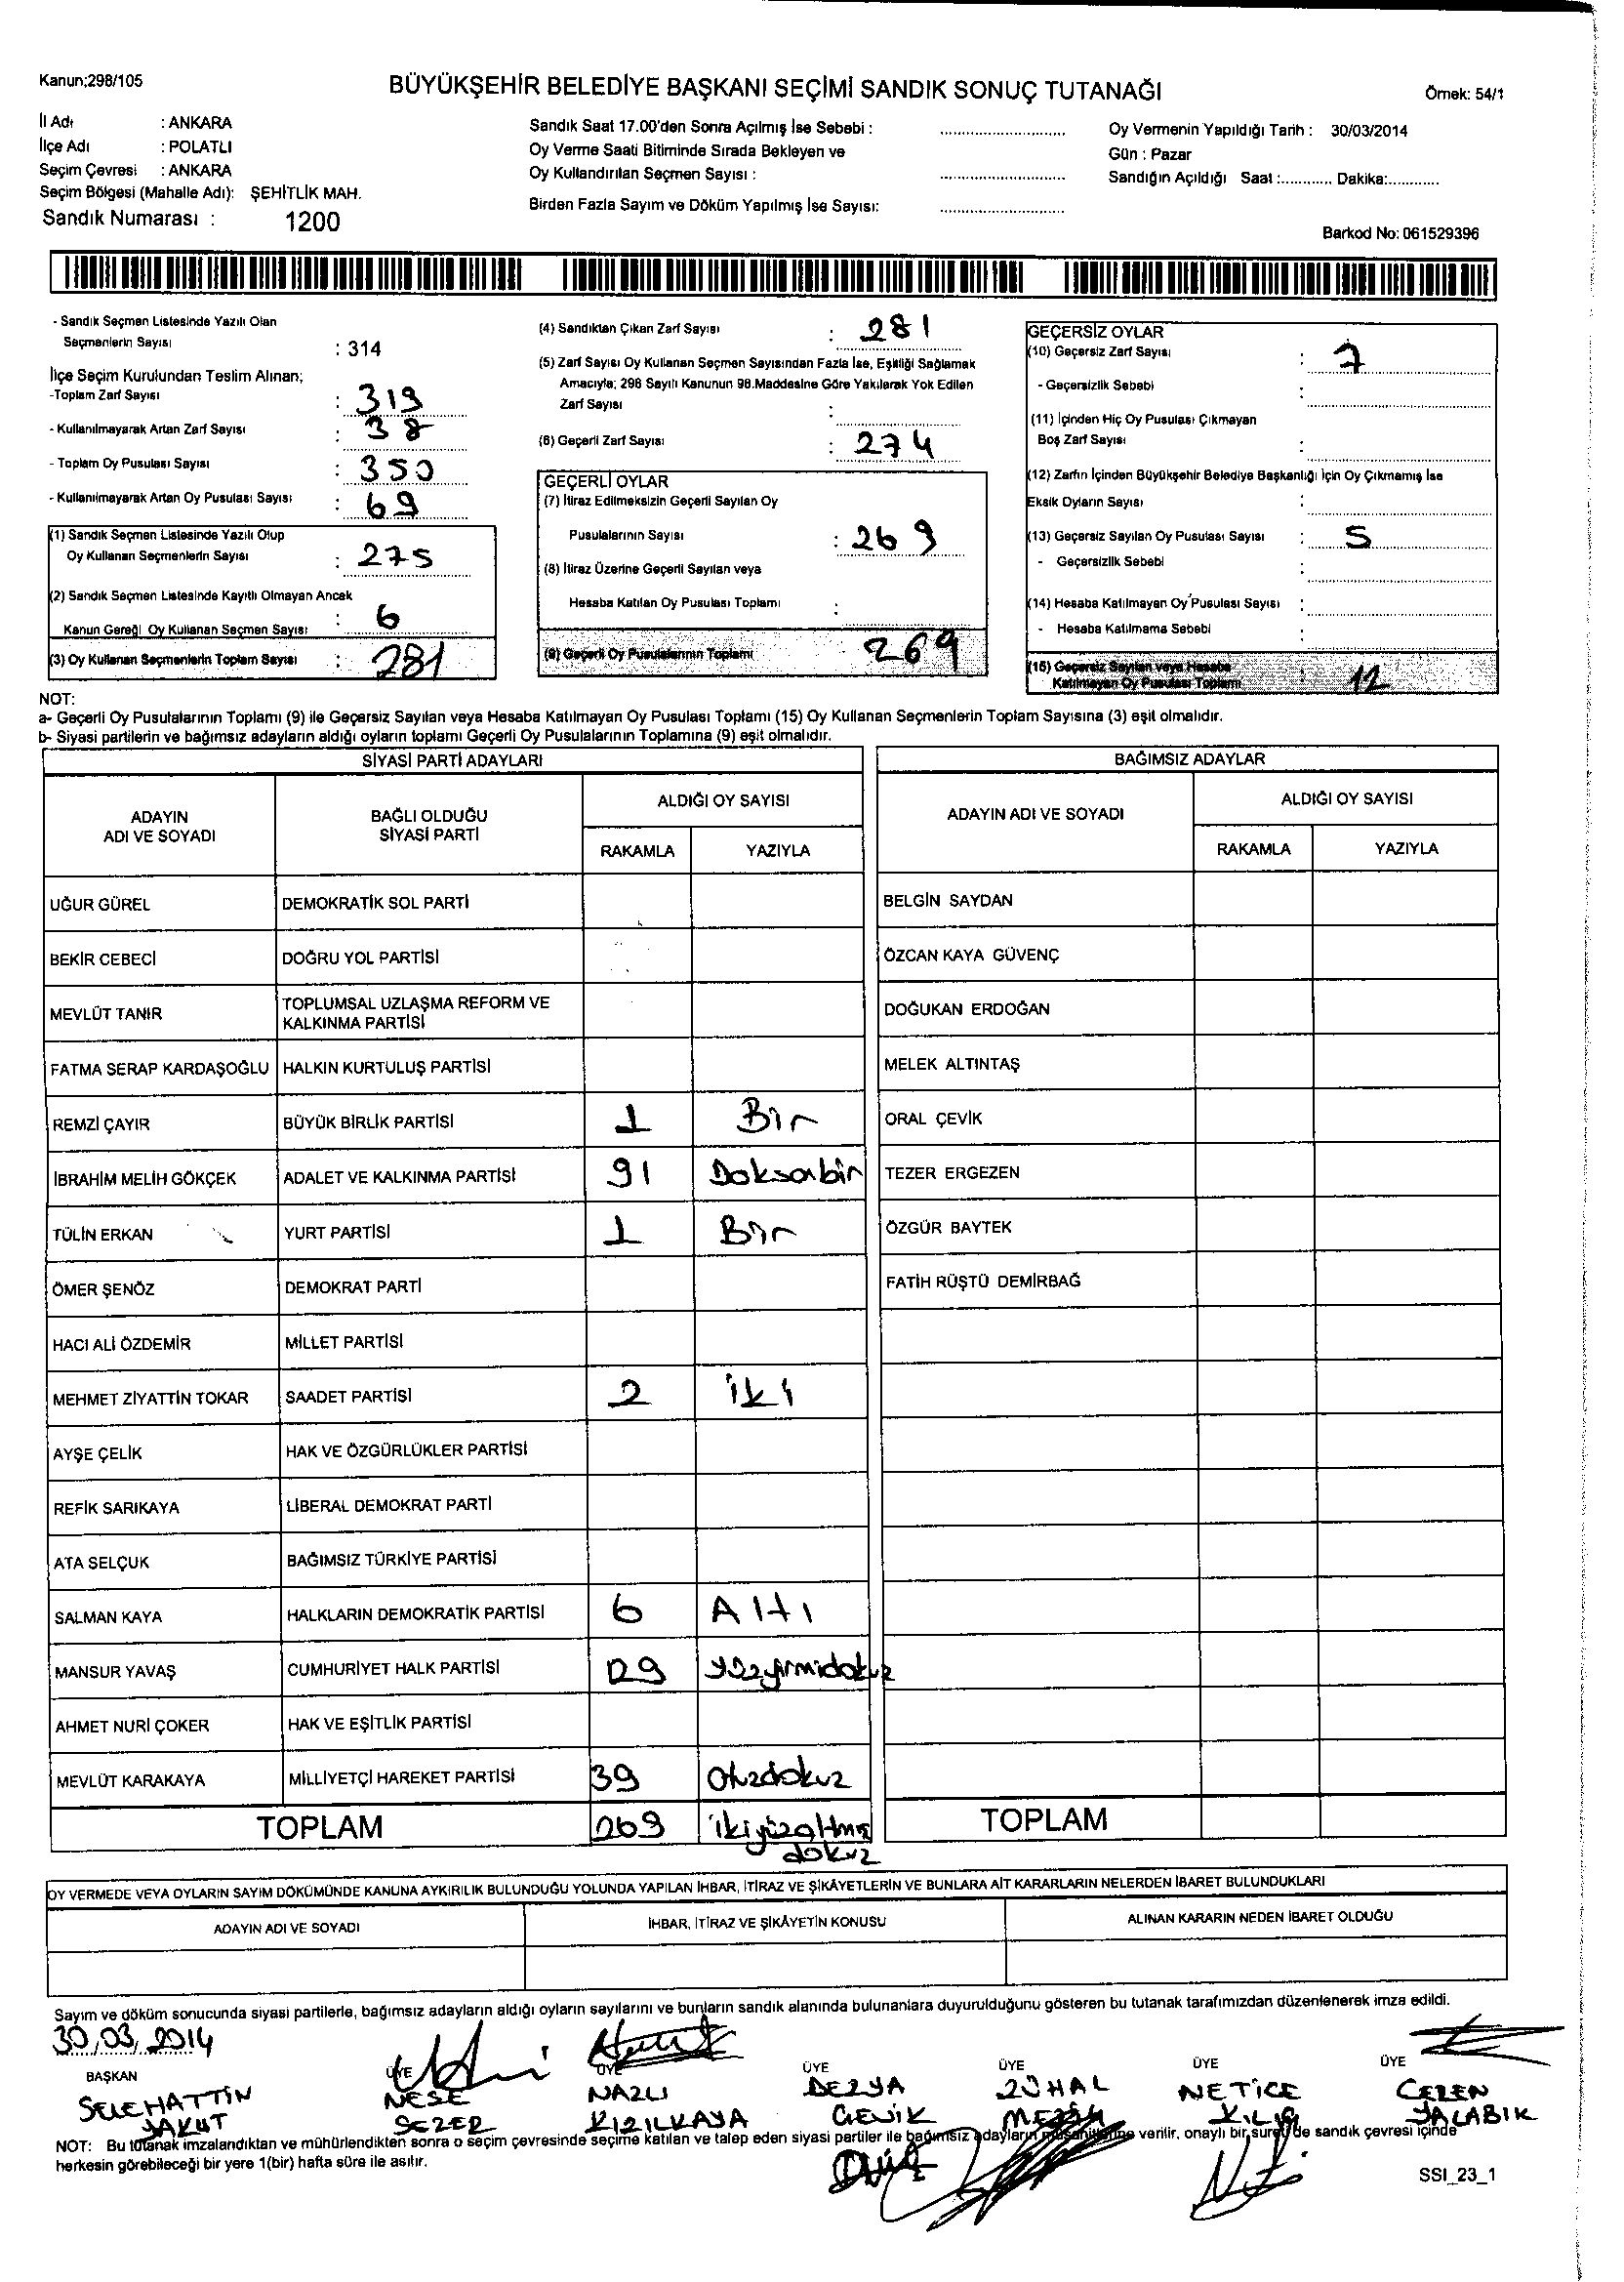 Kanun;298/105
BÜYÜKŞEHİR BELEDİYE BAŞKANI SEÇİMİ SANDIK SONUÇ TUTANAĞI
Örnek: 54/1
İl Adı : ANKARA
İlçe Adı : POLATLI
Seçim Çevresi : ANKARA
Seçim Bölgesi (Mahalle Adı): ŞEHİTLİK MAH.
Sandık Numarası : 1200
Sandık Saat 17.00'den Sonra Açılmış İse Sebebi : ..........
Oy Verme Saati Bitiminde Sırada Bekleyen ve
Oy Kullandırılan Seçmen Sayısı : ..........
Birden Fazla Sayım ve Döküm Yapılmış İse Sayısı: ..........
Oy Vermenin Yapıldığı Tarih : 30/03/2014
Gün : Pazar
Sandığın Açıldığı Saat :........... Dakika:...........
Barkod No: 061529396
- Sandık Seçmen Listesinde Yazılı Olan
Seçmenlerin Sayısı : 314
İlçe Seçim Kurulundan Teslim Alınan;
-Toplam Zarf Sayısı : 319
- Kullanılmayarak Artan Zarf Sayısı : 38
- Toplam Oy Pusulası Sayısı : 350
- Kullanılmayarak Artan Oy Pusulası Sayısı : 69
(1) Sandık Seçmen Listesinde Yazılı Olup
Oy Kullanan Seçmenlerin Sayısı : 275
(2) Sandık Seçmen Listesinde Kayıtlı Olmayan Ancak
Kanun Gereği Oy Kullanan Seçmen Sayısı : 6
(3) Oy Kullanan Seçmenlerin Toplam Sayısı : 281
(4) Sandıktan Çıkan Zarf Sayısı : 281
(5) Zarf Sayısı Oy Kullanan Seçmen Sayısından Fazla İse, Eşitliği Sağlamak
Amacıyla; 298 Sayılı Kanunun 98.Maddesine Göre Yakılarak Yok Edilen
Zarf Sayısı :
(6) Geçerli Zarf Sayısı : 274
GEÇERLİ OYLAR
(7) İtiraz Edilmeksizin Geçerli Sayılan Oy
Pusulalarının Sayısı : 269
(8) İtiraz Üzerine Geçerli Sayılan veya
Hesaba Katılan Oy Pusulası Toplamı :
(9) Geçerli Oy Pusulalarının Toplamı 269
GEÇERSİZ OYLAR
(10) Geçersiz Zarf Sayısı : 7
- Geçersizlik Sebebi :
(11) İçinden Hiç Oy Pusulası Çıkmayan
Boş Zarf Sayısı :
(12) Zarfın İçinden Büyükşehir Belediye Başkanlığı İçin Oy Çıkmamış İse
Eksik Oyların Sayısı :
(13) Geçersiz Sayılan Oy Pusulası Sayısı : 5
- Geçersizlik Sebebi :
(14) Hesaba Katılmayan Oy Pusulası Sayısı :
- Hesaba Katılmama Sebebi :
(15) Geçersiz Sayılan veya Hesaba
Katılmayan Oy Pusulası Toplamı : 12
NOT:
a- Geçerli Oy Pusulalarının Toplamı (9) ile Geçersiz Sayılan veya Hesaba Katılmayan Oy Pusulası Toplamı (15) Oy Kullanan Seçmenlerin Toplam Sayısına (3) eşit olmalıdır.
b- Siyasi partilerin ve bağımsız adayların aldığı oyların toplamı Geçerli Oy Pusulalarının Toplamına (9) eşit olmalıdır.
SİYASİ PARTİ ADAYLARI
ADAYIN ADI VE SOYADI
BAĞLI OLDUĞU SİYASİ PARTİ
ALDIĞI OY SAYISI
RAKAMLA YAZIYLA
UĞUR GÜREL DEMOKRATİK SOL PARTİ
BEKİR CEBECİ DOĞRU YOL PARTİSİ
MEVLÜT TANIR TOPLUMSAL UZLAŞMA REFORM VE
KALKINMA PARTİSİ
FATMA SERAP KARDAŞOĞLU HALKIN KURTULUŞ PARTİSİ
REMZİ ÇAYIR BÜYÜK BİRLİK PARTİSİ 1 Bir
İBRAHİM MELİH GÖKÇEK ADALET VE KALKINMA PARTİSİ 91 Doksanbir
TÜLİN ERKAN YURT PARTİSİ 1 Bir
ÖMER ŞENÖZ DEMOKRAT PARTİ
HACI ALİ ÖZDEMİR MİLLET PARTİSİ
MEHMET ZİYATTİN TOKAR SAADET PARTİSİ 2 iki
AYŞE ÇELİK HAK VE ÖZGÜRLÜKLER PARTİSİ
REFİK SARIKAYA LİBERAL DEMOKRAT PARTİ
ATA SELÇUK BAĞIMSIZ TÜRKİYE PARTİSİ
SALMAN KAYA HALKLARIN DEMOKRATİK PARTİSİ 6 Altı
MANSUR YAVAŞ CUMHURİYET HALK PARTİSİ 129 yüzyirmidokuz
AHMET NURİ ÇOKER HAK VE EŞİTLİK PARTİSİ
MEVLÜT KARAKAYA MİLLİYETÇİ HAREKET PARTİSİ 39 Otuzdokuz
TOPLAM 269 ikiyüzaltmış
dokuz
BAĞIMSIZ ADAYLAR
ADAYIN ADI VE SOYADI
ALDIĞI OY SAYISI
RAKAMLA YAZIYLA
BELGİN SAYDAN
ÖZCAN KAYA GÜVENÇ
DOĞUKAN ERDOĞAN
MELEK ALTINTAŞ
ORAL ÇEVİK
TEZER ERGEZEN
ÖZGÜR BAYTEK
FATİH RÜŞTÜ DEMİRBAĞ
TOPLAM
OY VERMEDE VEYA OYLARIN SAYIM DÖKÜMÜNDE KANUNA AYKIRILIK BULUNDUĞU YOLUNDA YAPILAN İHBAR, İTİRAZ VE ŞİKÂYETLERİN VE BUNLARA AİT KARARLARIN NELERDEN İBARET BULUNDUKLARI
ADAYIN ADI VE SOYADI İHBAR, İTİRAZ VE ŞİKÂYETİN KONUSU ALINAN KARARIN NEDEN İBARET OLDUĞU
Sayım ve döküm sonucunda siyasi partilerle, bağımsız adayların aldığı oyların sayılarını ve bunların sandık alanında bulunanlara duyurulduğunu gösteren bu tutanak tarafımızdan düzenlenerek imza edildi.
30/03/2014
BAŞKAN ÜYE ÜYE ÜYE ÜYE ÜYE ÜYE
SELEHATTİN NEŞE NAZLI DERYA ZÜHAL NETİCE CEREN
YAKUT SEZER KIZILKAYA GEVİK KILIÇ YALABIK
NOT: Bu tutanak imzalandıktan ve mühürlendikten sonra o seçim çevresinde seçime katılan ve talep eden siyasi partiler ile bağımsız adayların müşahitlerine verilir, onaylı bir sureti de sandık çevresi içinde
herkesin görebileceği bir yere 1(bir) hafta süre ile asılır.
SSI_23_1